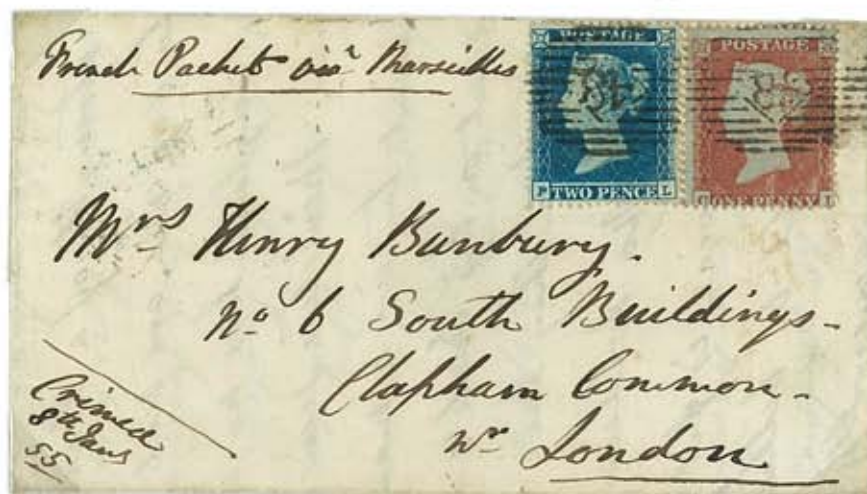 French Packet viâ Marseilles
POSTAGE
POSTAGE
P TWO PENCE L
ONE PENNY L
Mrs Henry Bunbury.
No 6 South Buildings-
Clapham Common-
Nr London
Crimea
8th Jany
55